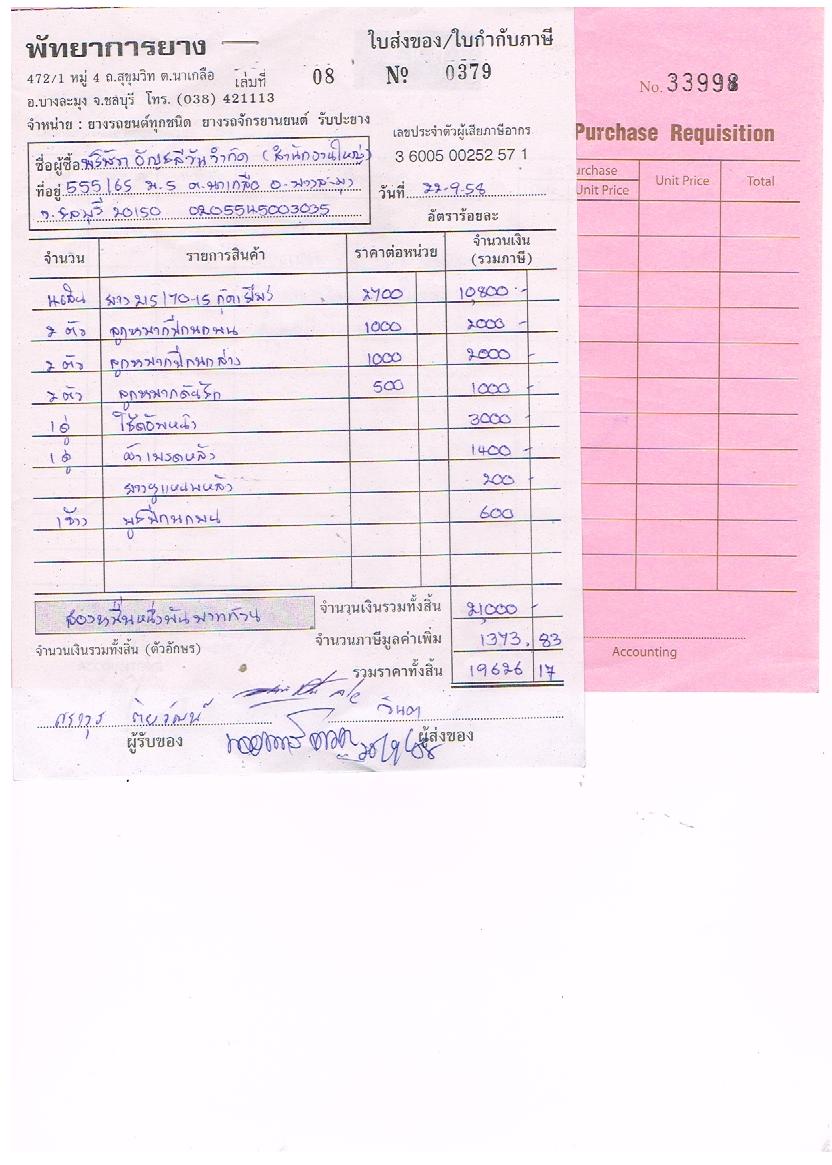 พัทยาการยาง
ใบส่งของ/ใบกำกับภาษี
472/1 หมู่ 4 ถ.สุขุมวิท ต.นาเกลือ เล่มที่ 08 Nº 0379
อ.บางละมุง จ.ชลบุรี โทร. (038) 421113
จำหน่าย : ยางรถยนต์ทุกชนิด ยางรถจักรยานยนต์ รับปะยาง
เลขประจำตัวผู้เสียภาษีอากร
3 6005 00252 57 1
ชื่อผู้ซื้อ บริษัท จำกัด (สำนักงานใหญ่)
ที่อยู่ 555/65 ม.5 ต.นาเกลือ อ.บางละมุง
จ.ชลบุรี 20150 0205545003035
วันที่ 22-9-58
อัตราร้อยละ
จำนวน รายการสินค้า ราคาต่อหน่วย จำนวนเงิน (รวมภาษี)
4เส้น ยาง 215/70-15 กู๊ดเยียร์ 2700 10,800 -
2 ตัว ลูกหมากปีกนกบน 1000 2000 -
2 ตัว ลูกหมากปีกนกล่าง 1000 2000 -
2 ตัว ลูกหมากคันชัก 500 1000 -
1 คู่ โช๊คอัพหน้า 3000 -
1 คู่ ผ้าเบรคหลัง 1400 -
ยางหูแหนบหลัง 200 -
1ข้าง บูชปีกนกบน 600
สองหมื่นหนึ่งพันบาทถ้วน
จำนวนเงินรวมทั้งสิ้น 21,000 -
จำนวนเงินรวมทั้งสิ้น (ตัวอักษร)
จำนวนภาษีมูลค่าเพิ่ม 1373. 83
รวมราคาทั้งสิ้น 19626 17
ผู้รับของ
ผู้ส่งของ
No. 33998
Purchase Requisition
urchase
Unit Price Unit Price Total
Accounting